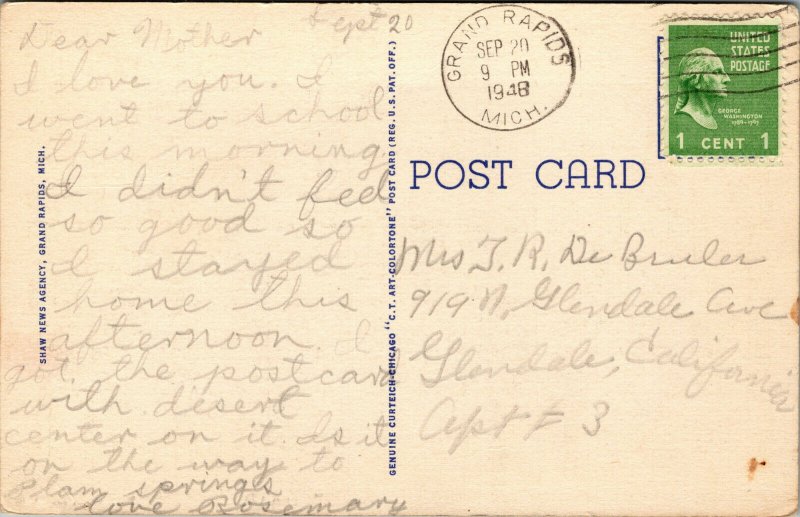 Sept 20
Dear Mother
I love you. I
went to school
this morning
I didn't feel
so good so
I stayed
home this
afternoon. I
got the postcard
with desert
center on it. Is it
on the way to
Plam springs
love Rosemary
SHAW NEWS AGENCY, GRAND RAPIDS, MICH.
GENUINE CURTEICH-CHICAGO "C.T. ART-COLORTONE" POST CARD (REG. U.S. PAT. OFF.)
GRAND RAPIDS
SEP 20
9 PM
1948
MICH.
UNITED
STATES
POSTAGE
GEORGE
WASHINGTON
1789-1797
1 CENT 1
POST CARD
Mrs T. R. De Bruler
919 N. Glendale Ave
Glendale, California
Apt # 3